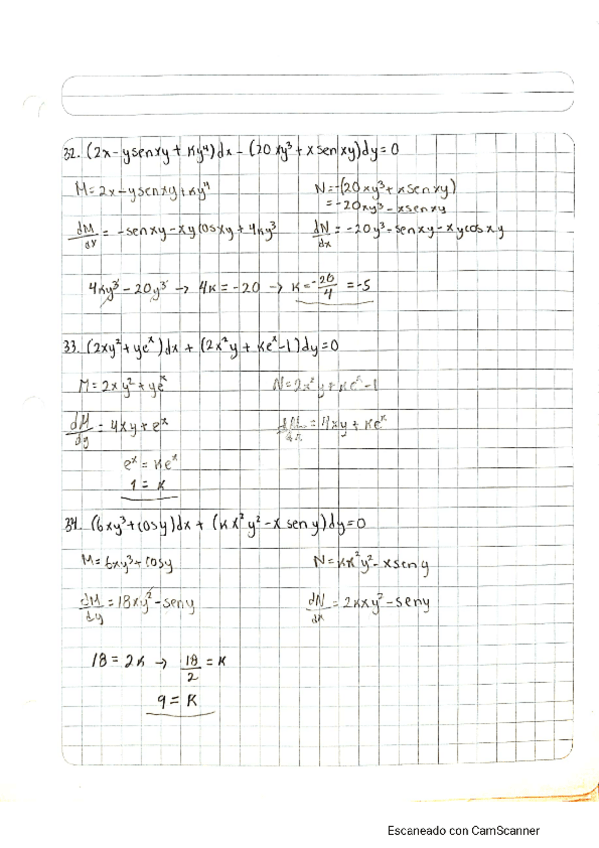 32. (2x-ysenxy+Ky⁴)dx-(20xy³+xsenxy)dy=0
M=2x-ysenxy+Ky⁴ N=-(20xy³+xsenxy)
=-20xy³-xsenxy
dM/dy = -senxy-xycosxy+4Ky³ dN/dx = -20y³-senxy-xycosxy
4Ky³-20y³ → 4K=-20 → K=-20/4 =-5
33. (2xy²+yeˣ)dx+(2x²y+Keˣ-1)dy=0
M=2xy²+yeˣ N=2x²y+Keˣ-1
dM/dy = 4xy+eˣ dN/dx = 4xy+Keˣ
eˣ=Keˣ
1=K
34. (6xy³+cosy)dx+(Kx²y²-xseny)dy=0
M=6xy³+cosy N=Kx²y²-xseny
dM/dy =18xy²-seny dN/dx =2Kxy²-seny
18=2K → 18/2 =K
9=K
Escaneado con CamScanner